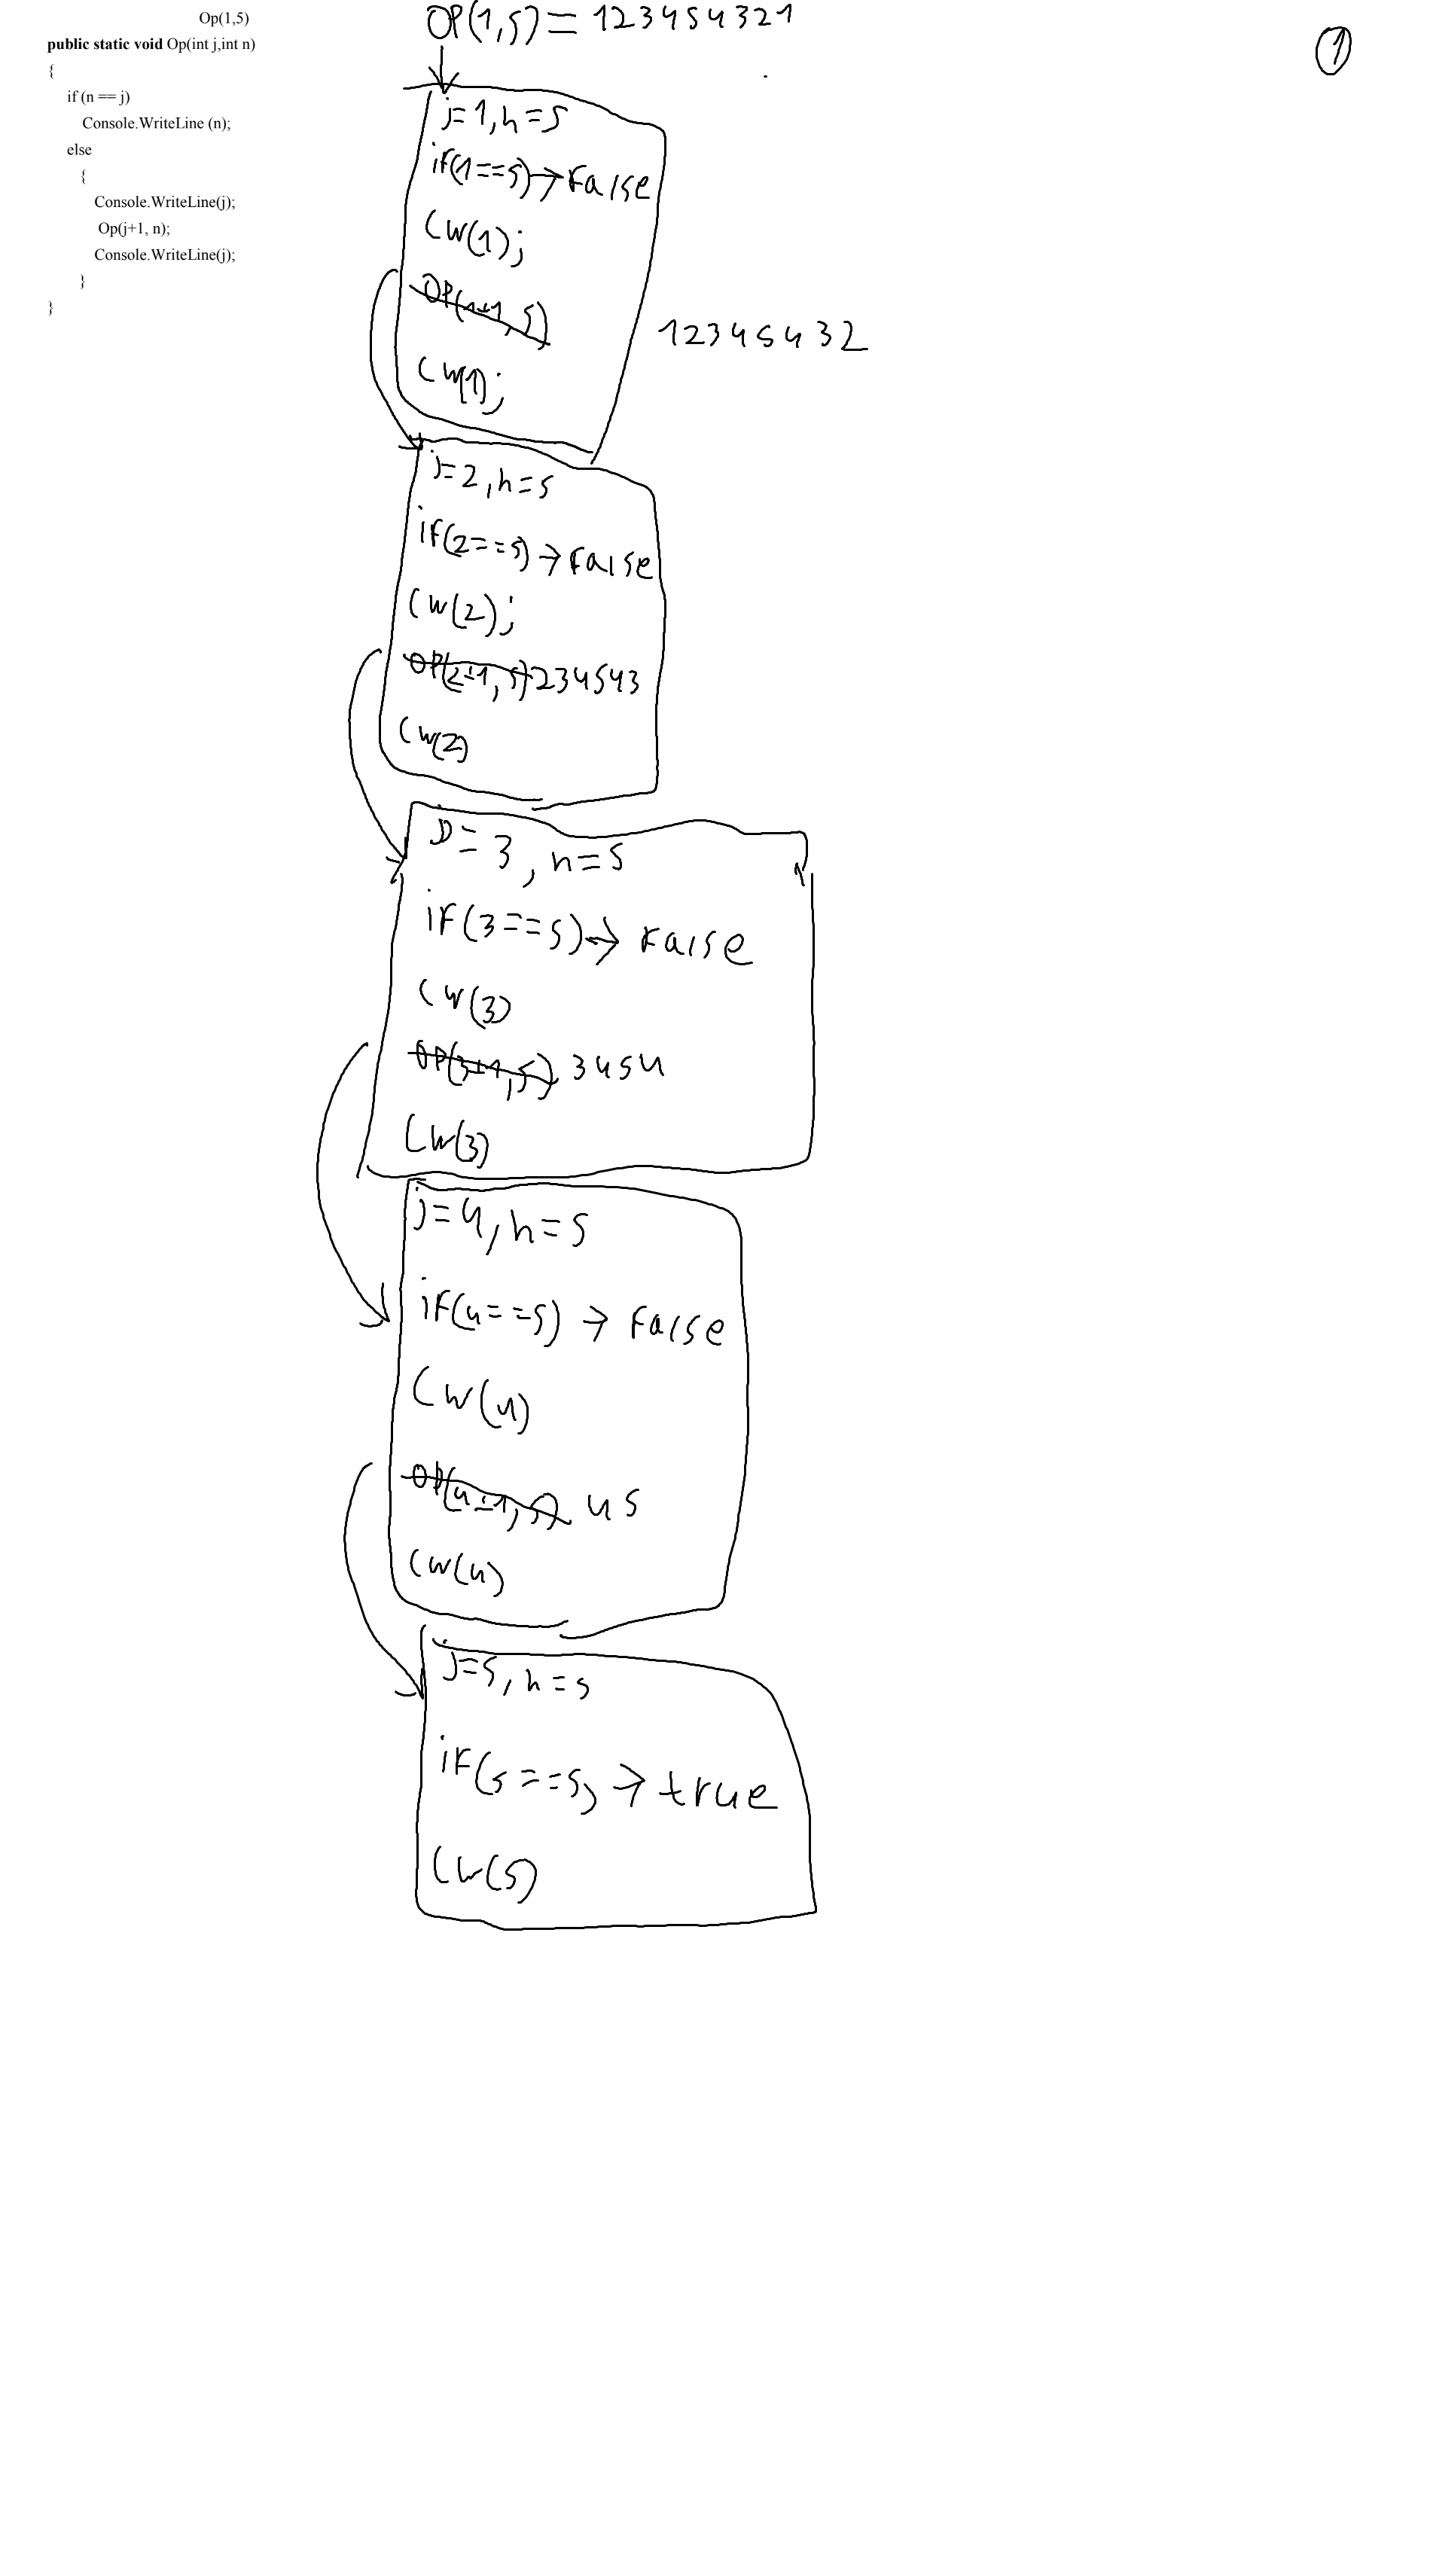 Op(1,5)
public static void Op(int j,int n)
{
if (n == j)
Console.WriteLine (n);
else
{
Console.WriteLine(j);
Op(j+1, n);
Console.WriteLine(j);
}
}
OP(1,5) = 123454321
①
j=1, n=5
if(1==5)→False
CW(1);
OP(1+1,5)
12345432
CW(1);
j=2, n=5
if(2==5)→False
CW(2);
OP(2+1,5) 234543
CW(2)
j=3, n=5
if(3==5)→False
CW(3)
OP(3+1,5) 3454
CW(3)
j=4, n=5
if(4==5)→False
CW(4)
OP(4+1,5) 45
CW(4)
j=5, n=5
if(5==5)→true
CW(5)